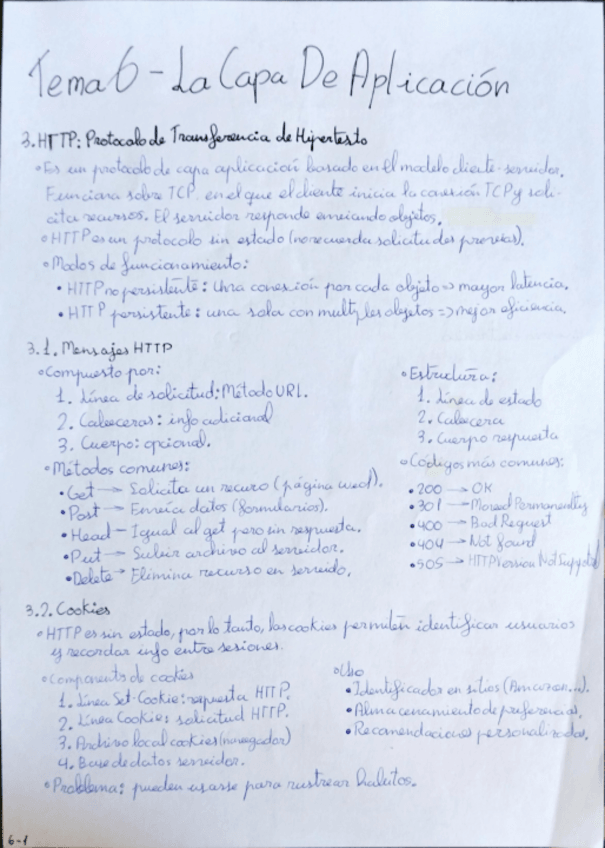 Tema 6 - La Capa De Aplicación
3. HTTP: Protocolo de Transferencia de Hipertexto
• Es un protocolo de capa aplicación basado en el modelo cliente-servidor.
Funciona sobre TCP, en el que el cliente inicia la conexión TCP y soli-
cita recursos. El servidor responde enviando objetos.
• HTTP es un protocolo sin estado (no recuerda solicitudes previas).
• Modos de funcionamiento:
• HTTP no persistente: Una conexión por cada objeto => mayor latencia.
• HTTP persistente: una sola con multiples objetos => mejor eficiencia.
3.1. Mensajes HTTP
• Compuesto por:
1. Línea de solicitud: Método URL.
2. Cabeceras: info adicional
3. Cuerpo: opcional.
• Métodos comunes:
• Get → Solicita un recurso (página web).
• Post → Envía datos (formularios).
• Head → Igual al get pero sin respuesta.
• Put → Subir archivo al servidor.
• Delete → Elimina recurso en servido.
• Estructura:
1. Línea de estado
2. Cabecera
3. Cuerpo respuesta
• Códigos más comunes:
• 200 → OK
• 301 → Moved Permanently
• 400 → Bad Request
• 404 → Not found
• 505 → HTTP Version Not Suppted
3.2. Cookies
• HTTP es sin estado, por lo tanto, las cookies permiten identificar usuarios
y recordar info entre sesiones.
• Components de cookies
1. Línea Set-Cookie: repuesta HTTP.
2. Línea Cookies solicitud HTTP.
3. Archivo local cookies (navegador)
4. Base de datos servidor.
• Uso
• Identificador en sitios (Amazon...).
• Almacenamiento de preferencias.
• Recomendaciones personalizadas.
• Problema: pueden usarse para rastrear habitos.
6-1